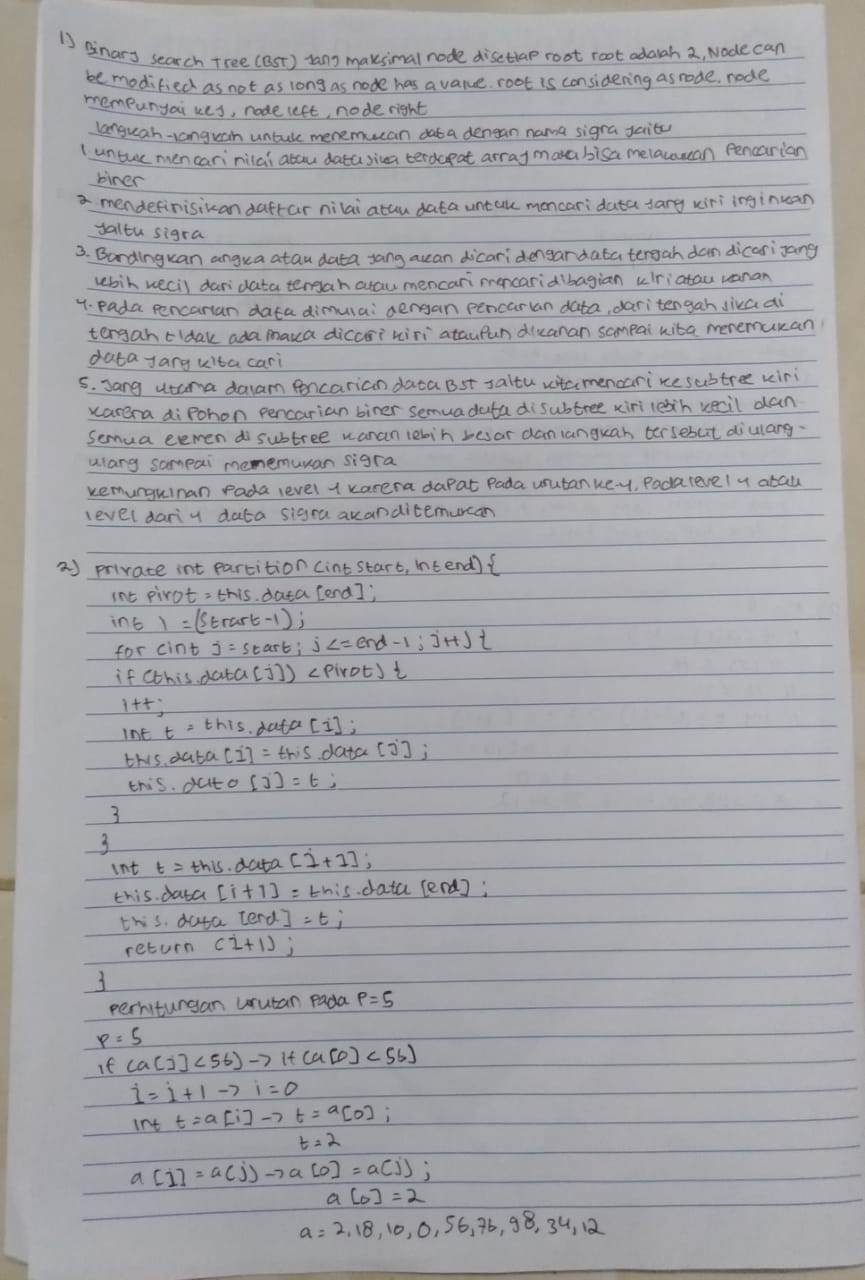 1) Binary search Tree (BST) yang maksimal node disetiap root root adalah 2, Node can
be modified as not as long as node has a value. root is considering as node. node
mempunyai key, node left, node right
langkah-langkah untuk menemukan data dengan nama sigra yaitu
1. untuk mencari nilai atau data jika terdapat array maka bisa melakukan Pencarian
biner
2. mendefinisikan daftar nilai atau data untuk mencari data yang kiri inginkan
yaitu sigra
3. Bandingkan angka atau data yang akan dicari dengan data tengah dan dicari yang
lebih kecil dari data tengah atau mencari mencari dibagian kiri atau kanan
4. pada pencarian data dimulai dengan pencarian data, dari tengah jika di
tengah tidak ada maka dicari kiri ataupun dikanan sampai kita menemukan
data yang kita cari
5. Yang utama dalam Pencarian data BST yaitu kita mencari ke subtree kiri
karena di Pohon Pencarian biner semua data di subtree kiri lebih kecil dan
semua elemen di subtree kanan lebih besar dan langkah tersebut diulang-
ulang sampai menemukan sigra
kemungkinan Pada level 4 karena dapat Pada urutan ke-4. Pada level 4 atau
level dari 4 data sigra akan ditemukan
2) private int partition (int start, int end) {
int pivot = this.data [end];
int i = (strart-1);
for (int j = start; j <= end-1; j++) {
if (this.data [j]) < pivot) {
i++;
int t = this.data [i];
this.data [i] = this.data [j];
this.data [j] = t;
}
}
int t = this.data [i+1];
this.data [i+1] = this.data [end];
this.data [end] = t;
return (i+1);
}
perhitungan urutan pada P=5
P = 5
if (a[j] < 56) -> if (a[0] < 56)
i = i+1 -> i = 0
int t = a[i] -> t = a[0];
t = 2
a [i] = a(j) -> a [0] = a(j);
a [0] = 2
a = 2, 18, 10, 0, 56, 76, 98, 34, 12